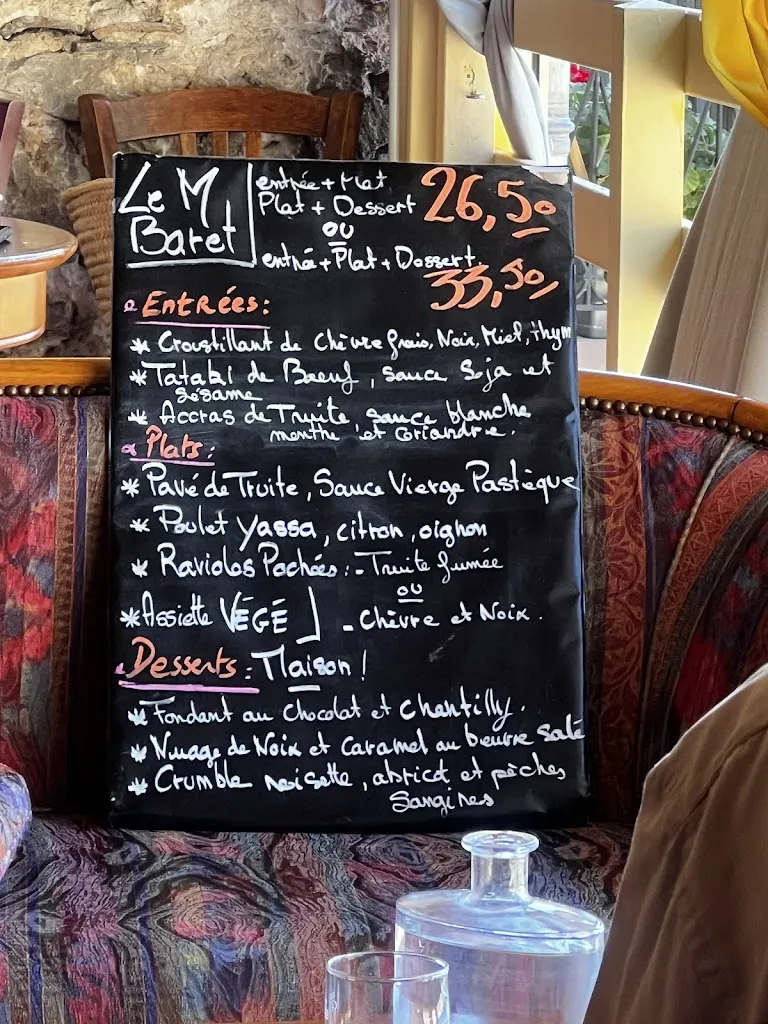 Le M
Baret
entrée + Plat
Plat + Dessert
26,50
ou
entrée + Plat + Dessert.
33,50,
Entrées:
* Croustillant de Chèvre frais, Noix, Miel, thym
* Tataki de Bœuf, sauce Soja et
Sésame
* Accras de Truite sauce blanche
menthe et Coriandre.
Plats:
* Pavé de Truite, Sauce Vierge Pastèque
* Poulet yassa, citron, oignon
* Ravioles Pochées: - Truite fumée
ou
* Assiette VÉGÉ - Chèvre et Noix.
Desserts: Maison!
* Fondant au Chocolat et Chantilly.
* Nuage de Noix et Caramel au beurre salé
* Crumble noisette, abricot et pêches
Sangines